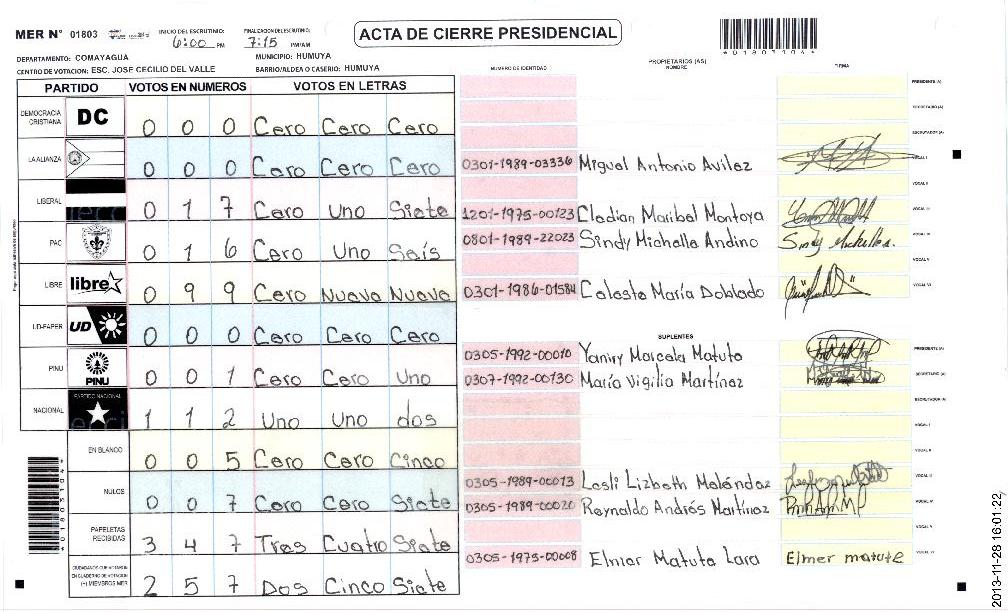 MER N° 01803
INICIO DEL ESCRUTINIO: 6:00 PM
FINALIZACION DEL ESCRUTINIO: 7:15 PM/AM
ACTA DE CIERRE PRESIDENCIAL
DEPARTAMENTO: COMAYAGUA
MUNICIPIO: HUMUYA
CENTRO DE VOTACION: ESC. JOSE CECILIO DEL VALLE
BARRIO/ALDEA O CASERIO: HUMUYA
PARTIDO VOTOS EN NUMEROS VOTOS EN LETRAS
DEMOCRACIA CRISTIANA DC 0 0 0 Cero Cero Cero
LA ALIANZA 0 0 0 Cero Cero Cero
LIBERAL 0 1 7 Cero Uno Siete
PAC 0 1 6 Cero Uno Seís
LIBRE libre 0 9 9 Cero Nueve Nueve
UD-FAPER UD 0 0 0 Cero Cero Cero
PINU PINU 0 0 1 Cero Cero Uno
NACIONAL PARTIDO NACIONAL 1 1 2 Uno Uno dos
EN BLANCO 0 0 5 Cero Cero Cinco
NULOS 0 0 7 Cero Cero Siete
PAPELETAS RECIBIDAS 3 4 7 Tres Cuatro Siete
CIUDADANOS QUE VOTARON EN CUADERNO DE VOTACION (+) MIEMBROS MER 2 5 7 Dos Cinco Siete
*01803104*
NUMERO DE IDENTIDAD PROPIETARIOS (AS) NOMBRE FIRMA
PRESIDENTE (A)
SECRETARIO (A)
ESCRUTADOR (A)
0301-1989-03336 Miguel Antonio Avilez VOCAL I
VOCAL II
1201-1975-00123 Cledian Maribel Montoya VOCAL III
0801-1989-22023 Sindy Michelle Andino Sindy Michelle A. VOCAL IV
VOCAL V
0301-1986-01584 Celeste María Doblado VOCAL VI
SUPLENTES
0305-1992-00010 Yaniry Marcela Matute PRESIDENTE (A)
0307-1992-00130 María Vigilia Martínez SECRETARIO (A)
ESCRUTADOR (A)
VOCAL I
VOCAL II
0305-1989-00013 Lesli Lizbeth Meléndez VOCAL III
0305-1989-00020 Reynaldo Andrés Martínez VOCAL IV
VOCAL V
0305-1975-00008 Elmer Matute Lara Elmer matute VOCAL VI
*01803104*
2013-11-28 16:01:22